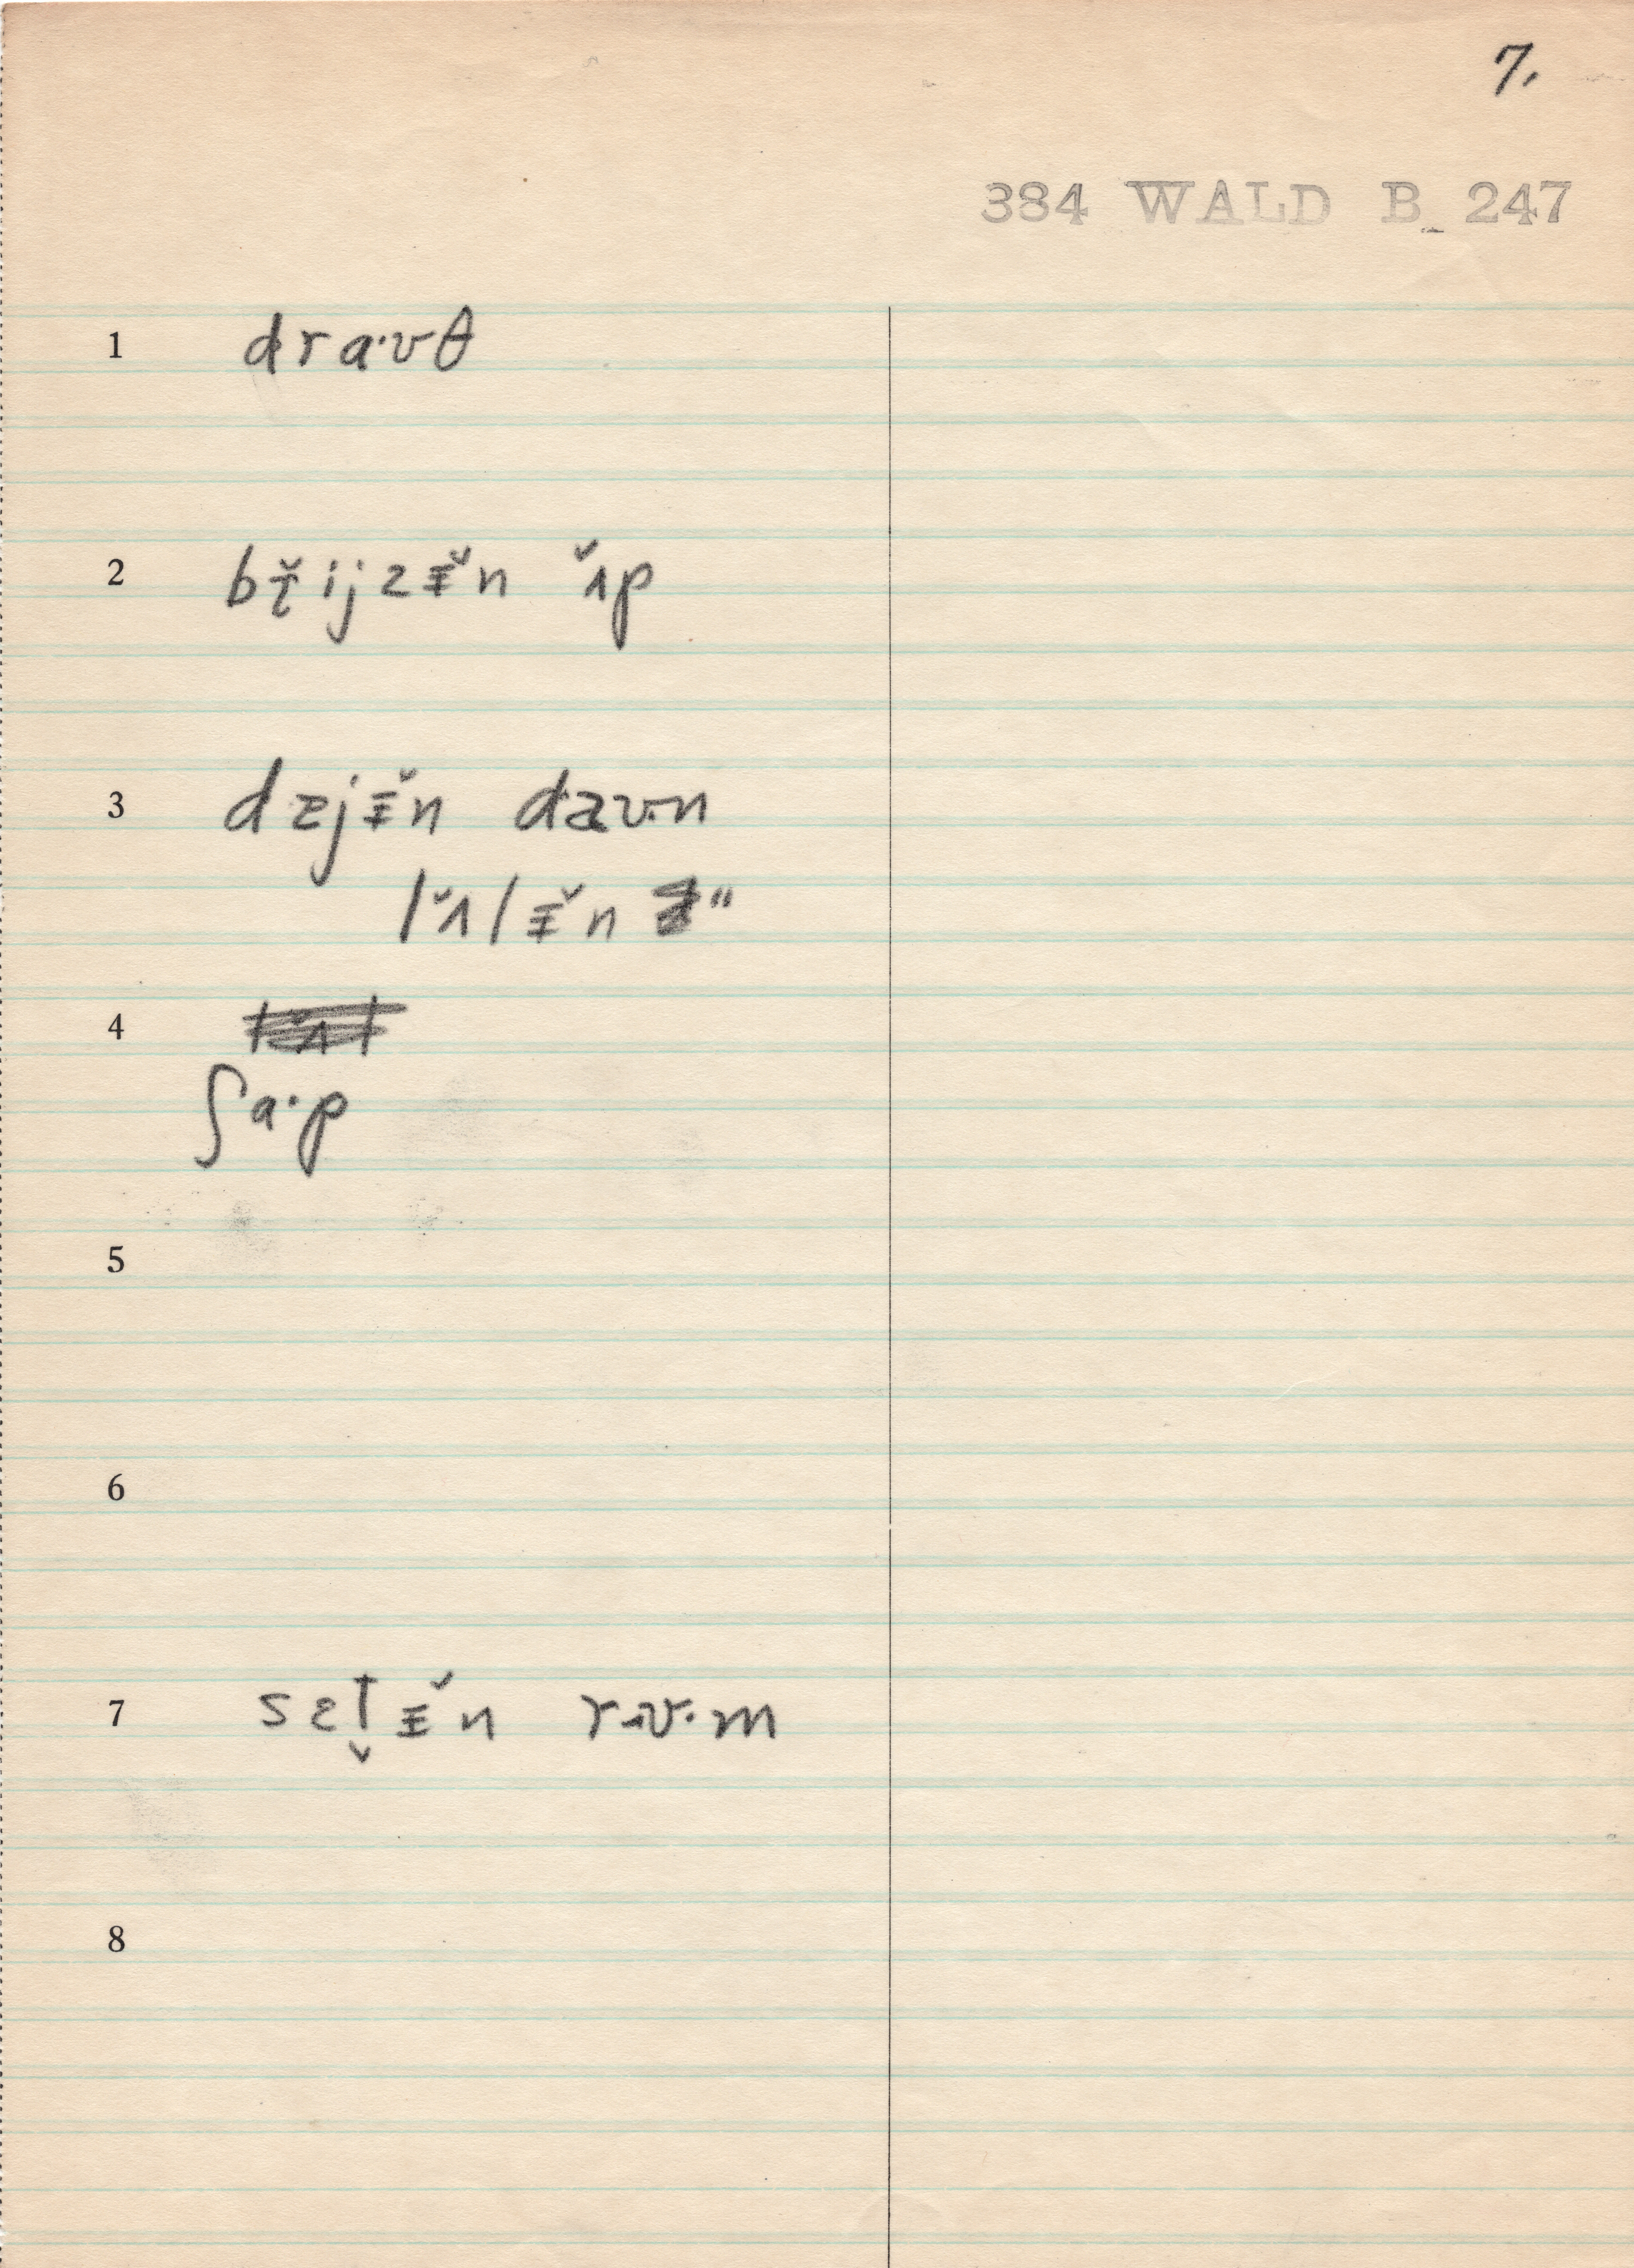 7.
384 WALD B 247
1 dra·vθ
2 br̬ijzɨ̆n ʌ̆p
3 dɛjɨ̆n davn
lʌ̆lɨ̆n "
4
ʃa·p
5
6
7 sɛt̬ɨ̆n rʊ·m
8